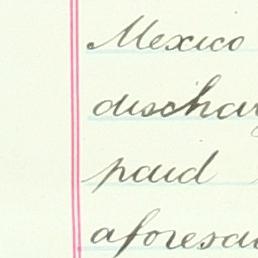 Mexico
dischar
paid
aforesai